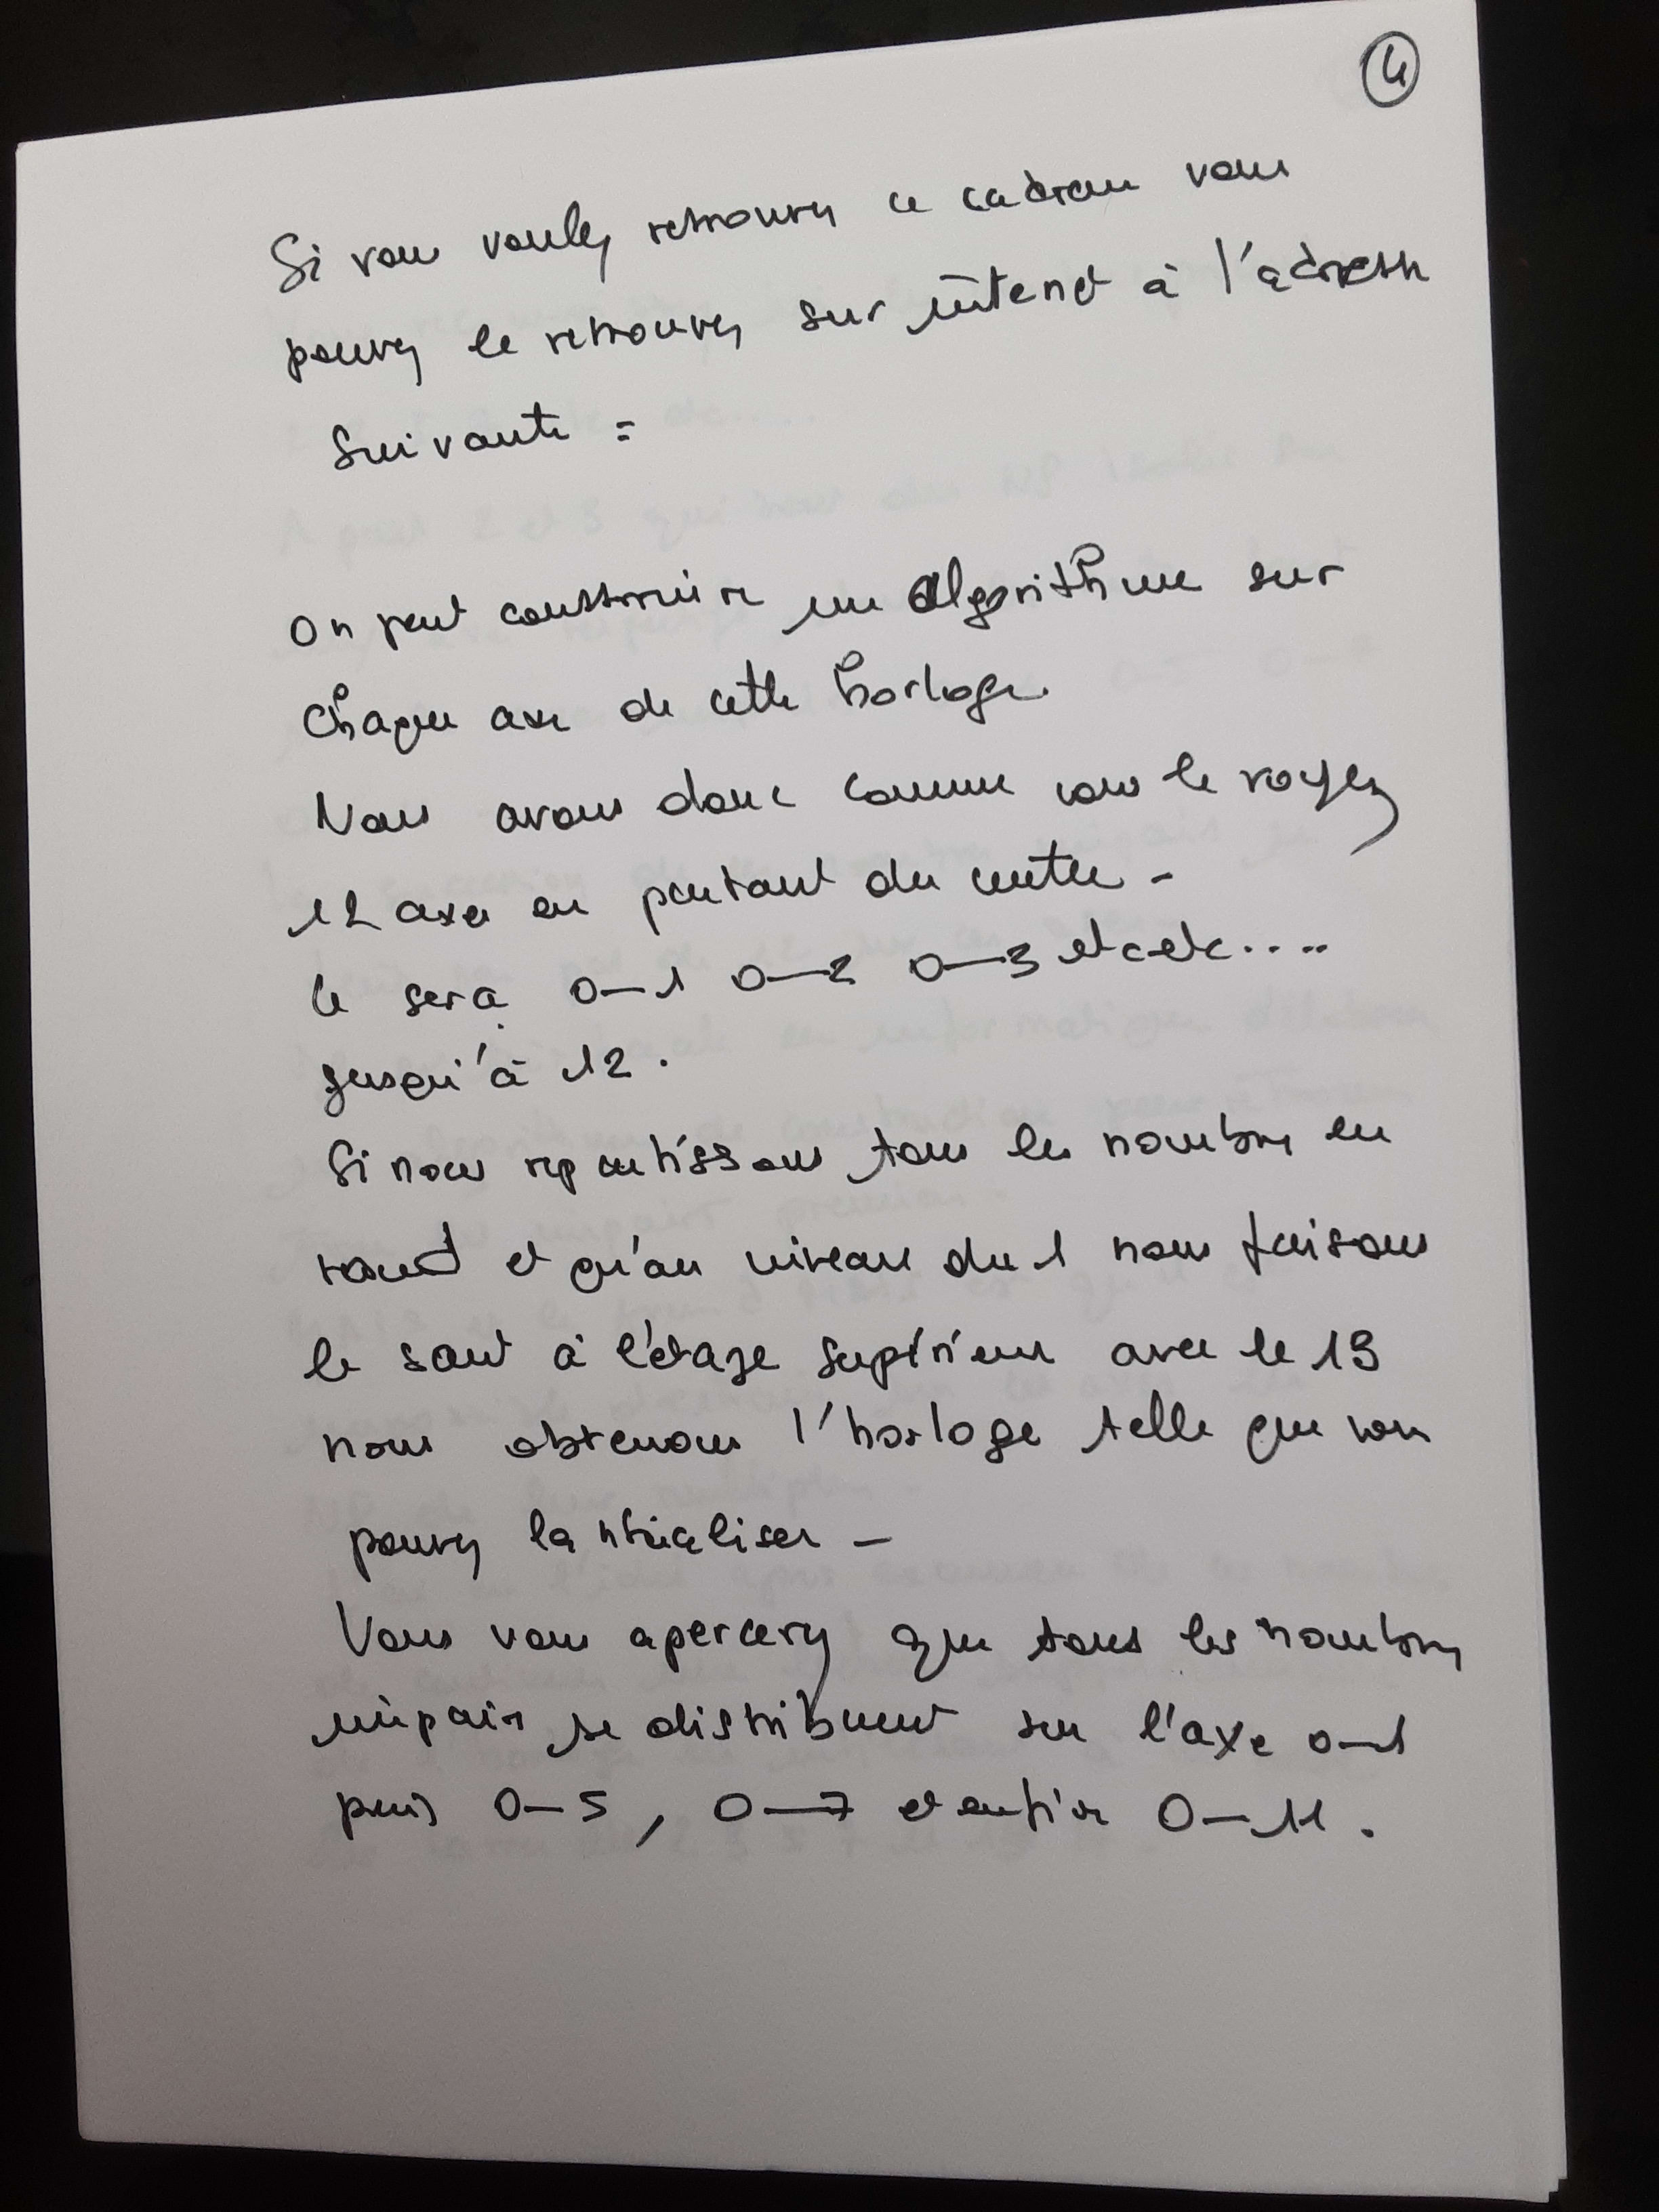 4
Si vous voulez retrouver ce cadran vous
pouvez le retrouver sur internet à l'adresse
suivante =
On peut construire un algorithme sur
chaque axe de cette horloge.
Nous avons donc comme vous le voyez
12 axes en partant du centre -
Ce sera 0-1 0-2 0-3 etc etc....
jusqu'à 12.
Si nous repartissons tous les nombres en
rond et qu'au niveau du 1 nous faisons
le saut à l'étage supérieur avec le 13
nous obtenons l'horloge telle que vous
pouvez la réaliser -
Vous vous apercevez que tous les nombres
impairs se distribuent sur l'axe 0-1
puis 0-5, 0-7 et enfin 0-11.